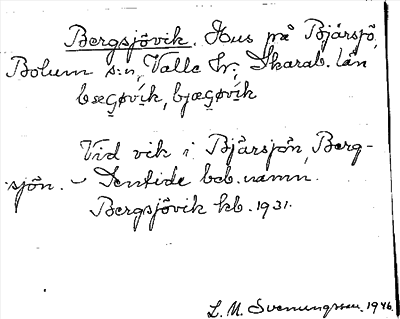 Bergsjövik. Hus på Bjärsjö,
Bolum s:n, Valle hr; Skarab. län
bæg̣øvík, bjæg̣øvík
Vid vik i Bjärsjön, Berg-
sjön. - Sentida beb.namn.
Bergsjövik kb. 1931.
L. M. Svenungsson. 1946.